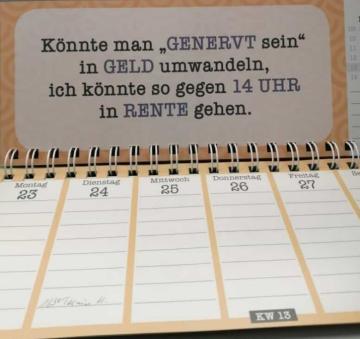 Könnte man „GENERVT sein“
in GELD umwandeln,
ich könnte so gegen 14 UHR
in RENTE gehen.
Montag
23
Dienstag
24
Mittwoch
25
Donnerstag
26
Freitag
27
KW 13